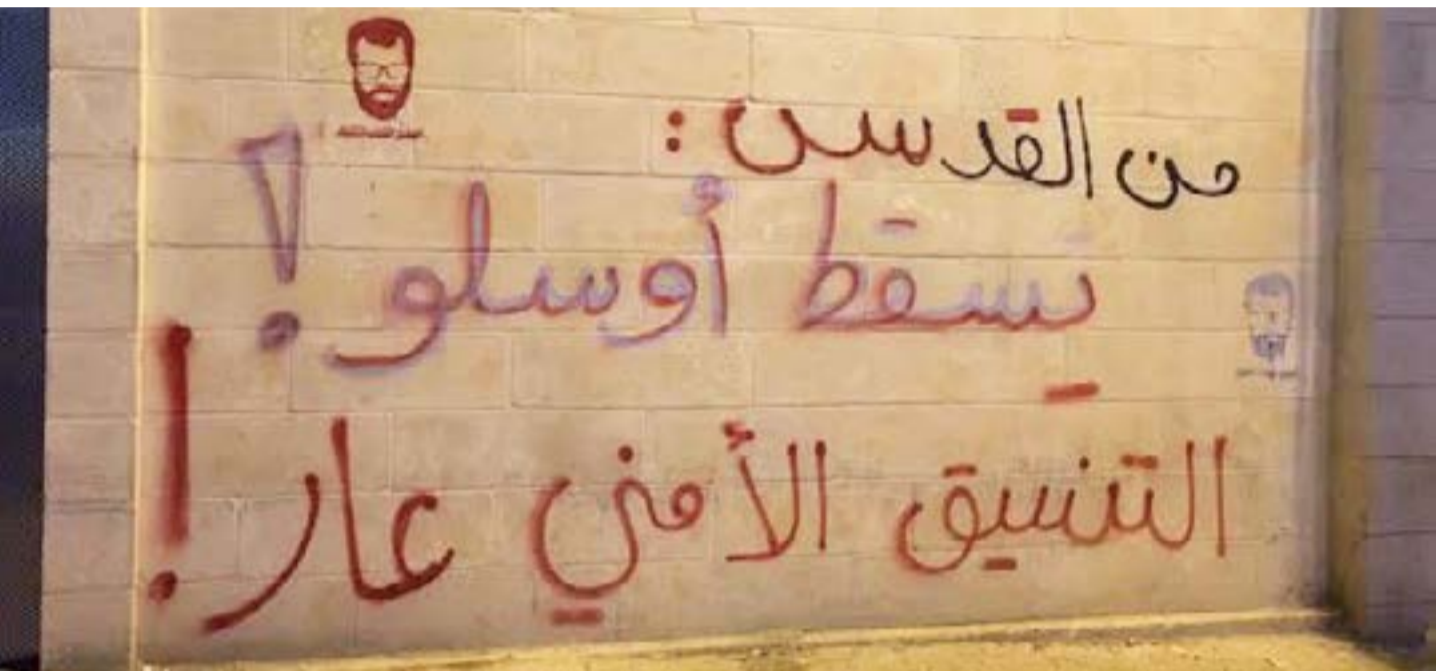 من القدس:
تسقط أوسلو!
التنسيق الأمني عار!